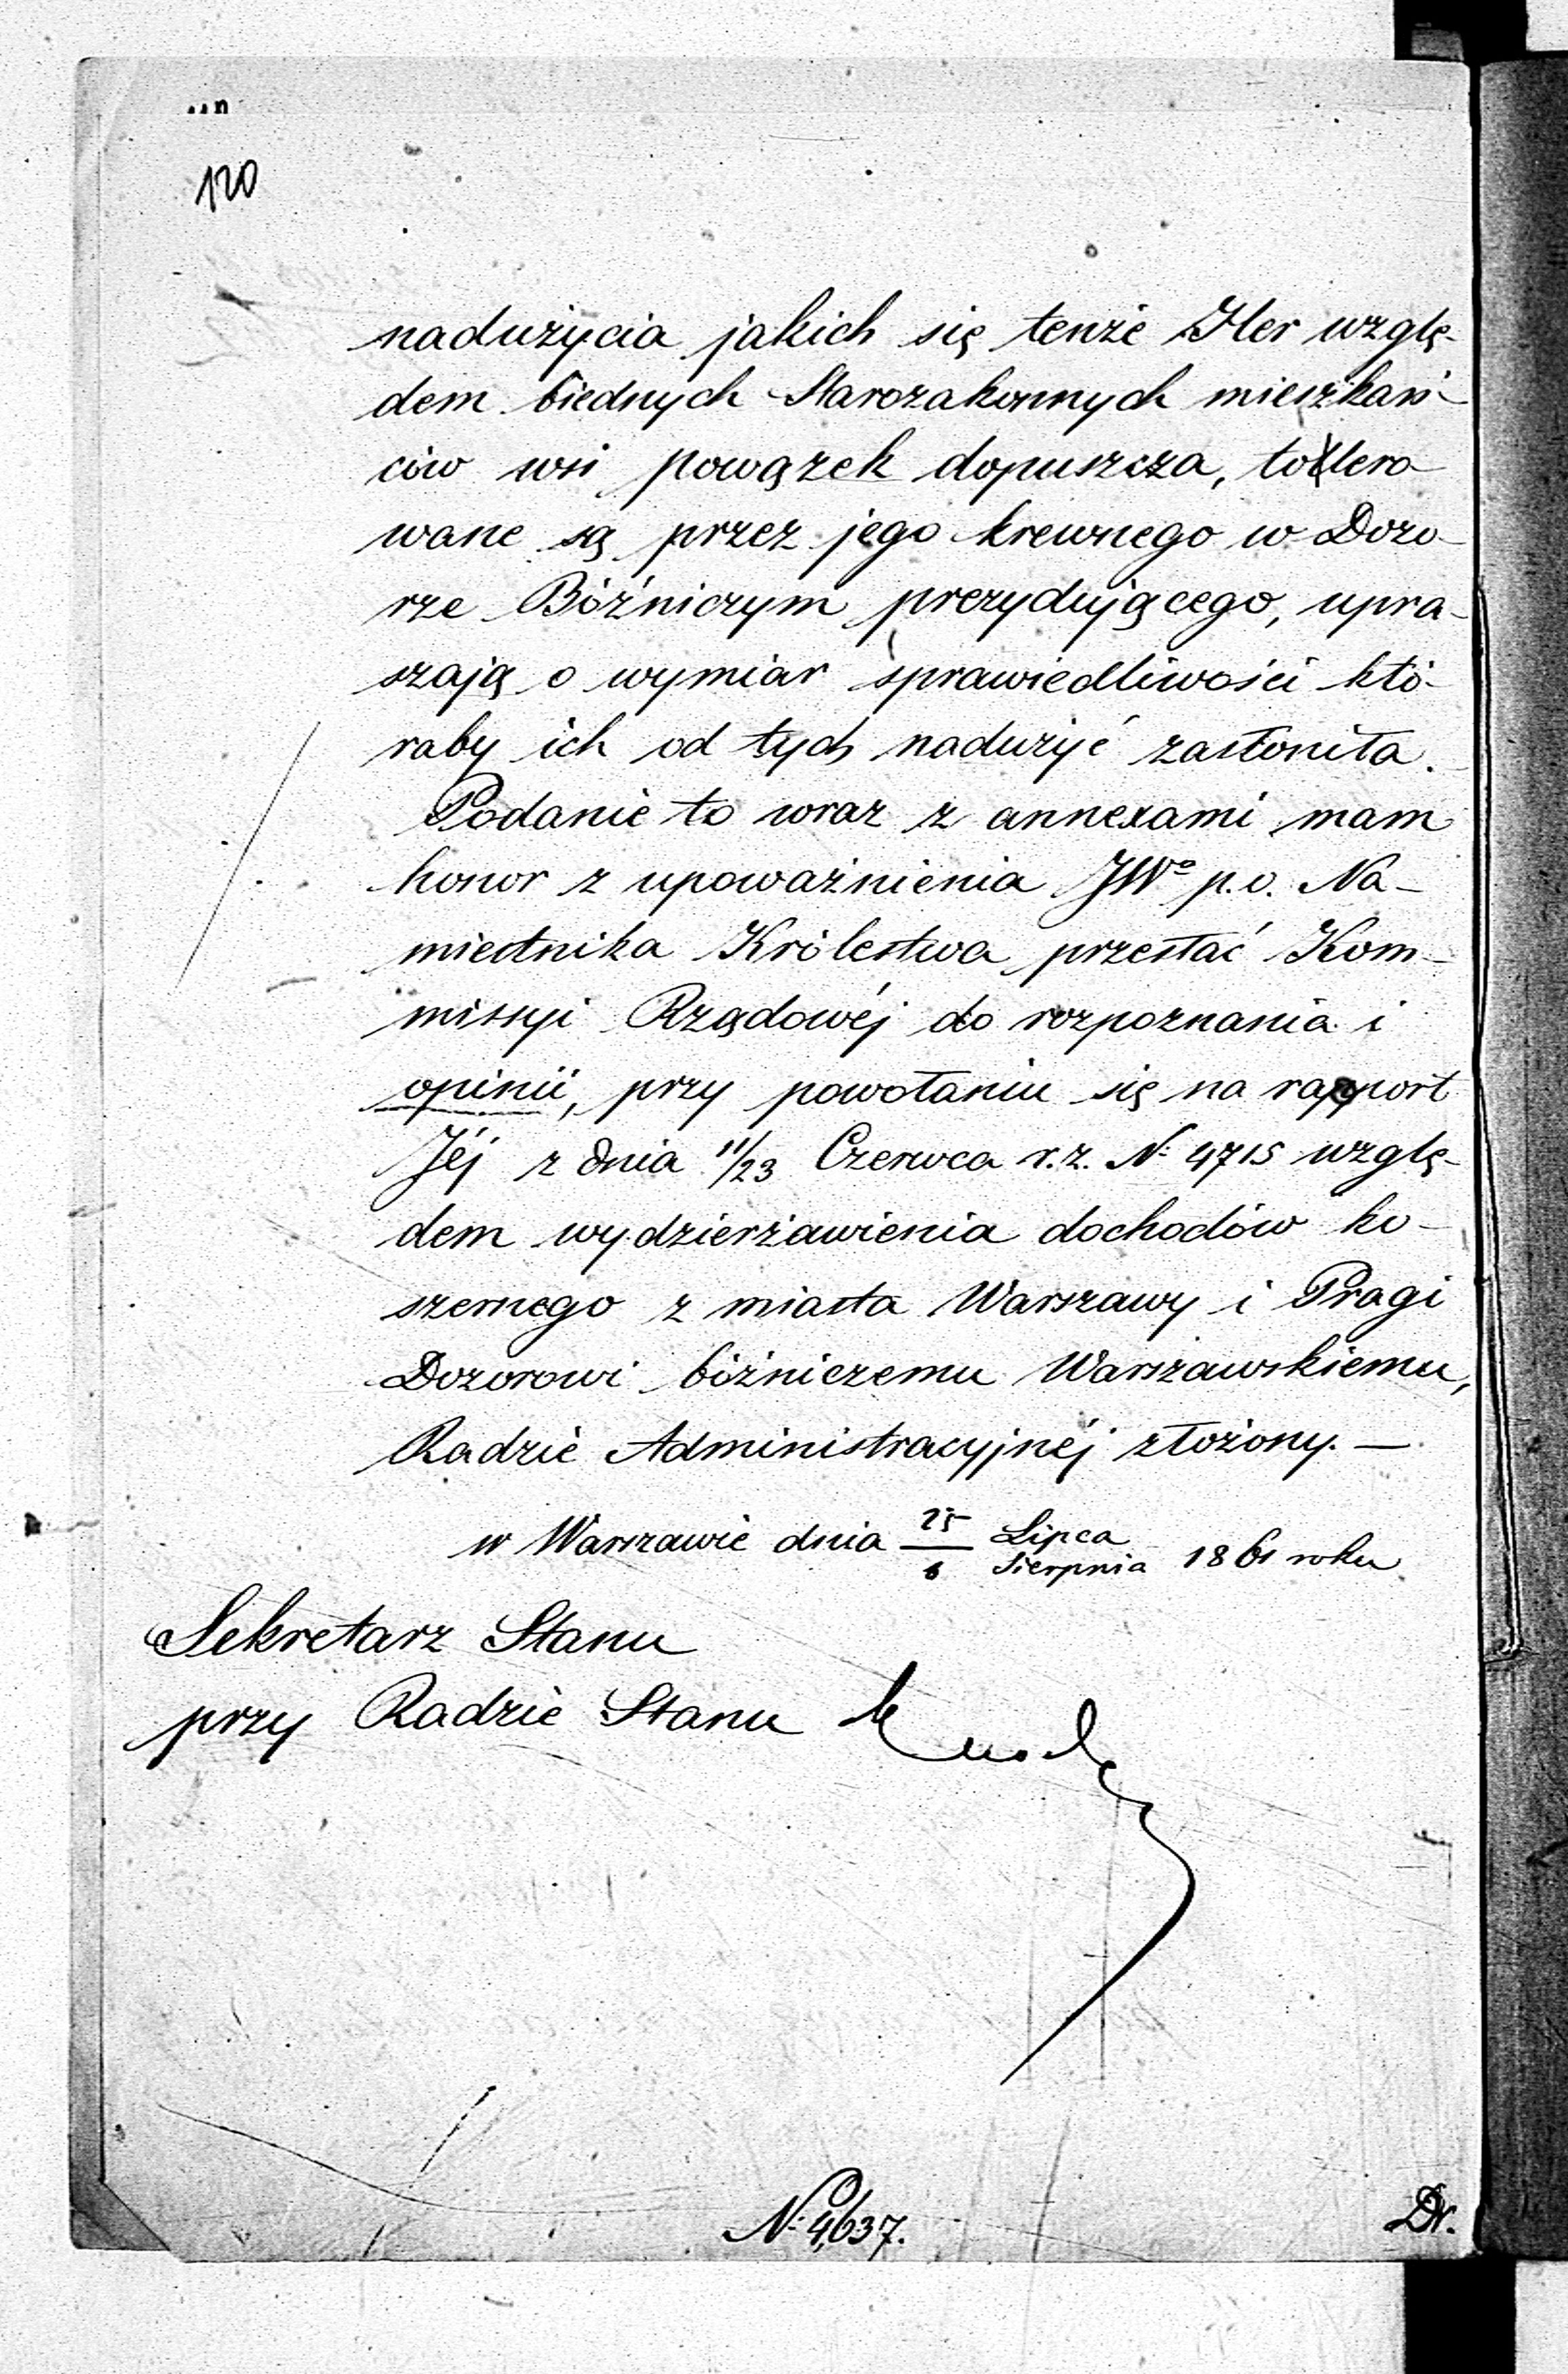 120
nadużycia jakich się tenże Iler wzglę-
dem biednych Starozakonnych mieszkań-
ców wsi Powązek dopuszcza, tollero-
wane są przez jego krewnego w Dozo-
rze Bóźniczym prezydującego, upra-
szają o wymiar sprawiedliwości któ-
raby ich od tych nadużyć zasłoniła.
Podanie to wraz z annexami mam
honor z upoważnienia JWo p.o. Na-
miestnika Królestwa przesłać Kom-
missyi Rządowéj do rozpoznania i
opinii, przy powołaniu się na rapport
Jéj z dnia 11/23 Czerwca r.z. N: 4715 wzglę-
dem wydzierżawienia dochodów ko-
szernego z miasta Warszawy i Pragi
Dozorowi bóżniczemu Warszawskiemu,
Radzie Administracyjnéj złożony. —
w Warszawie dnia 25/6 Lipca/Sierpnia 1861 roku
Sekretarz Stanu
przy Radzie Stanu
N: 4,637.
Dr.